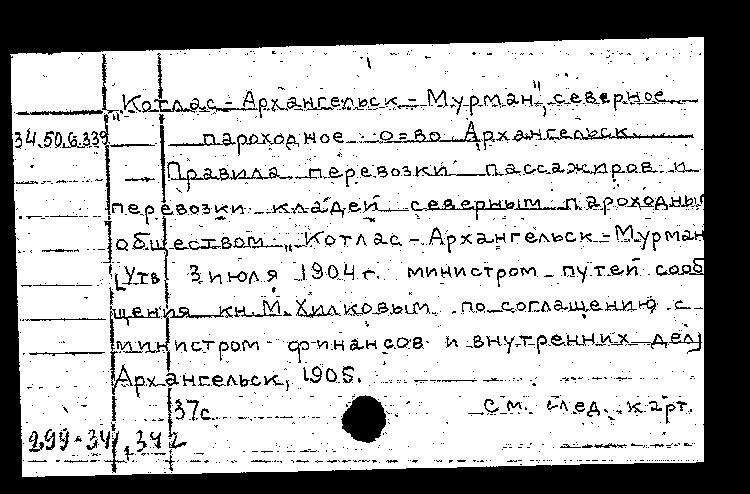 „Котлас - Архангельск - Мурман", северное
34.50.6.339 пароходное о-во Архангельск.
— Правила перевозки пассажиров и
перевозки кладей северным пароходны
обществом „Котлас - Архангельск - Мурман
[Утв 3 июля 1904 г. министром путей сооб
щения кн. М. Хилковым по соглашению с
министром финансов и внутренних дел]
Архангельск, 1905.
37 с. см. след. карт.
299-341, 342